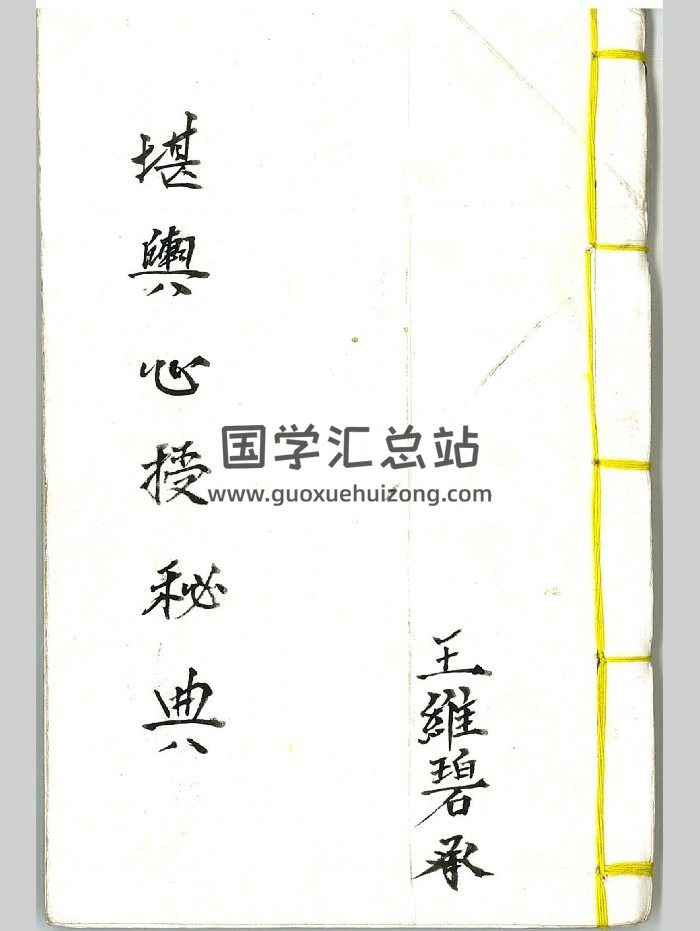 堪輿心授秘典
王維碧承
国学汇总站
www.guoxuehuizong.com